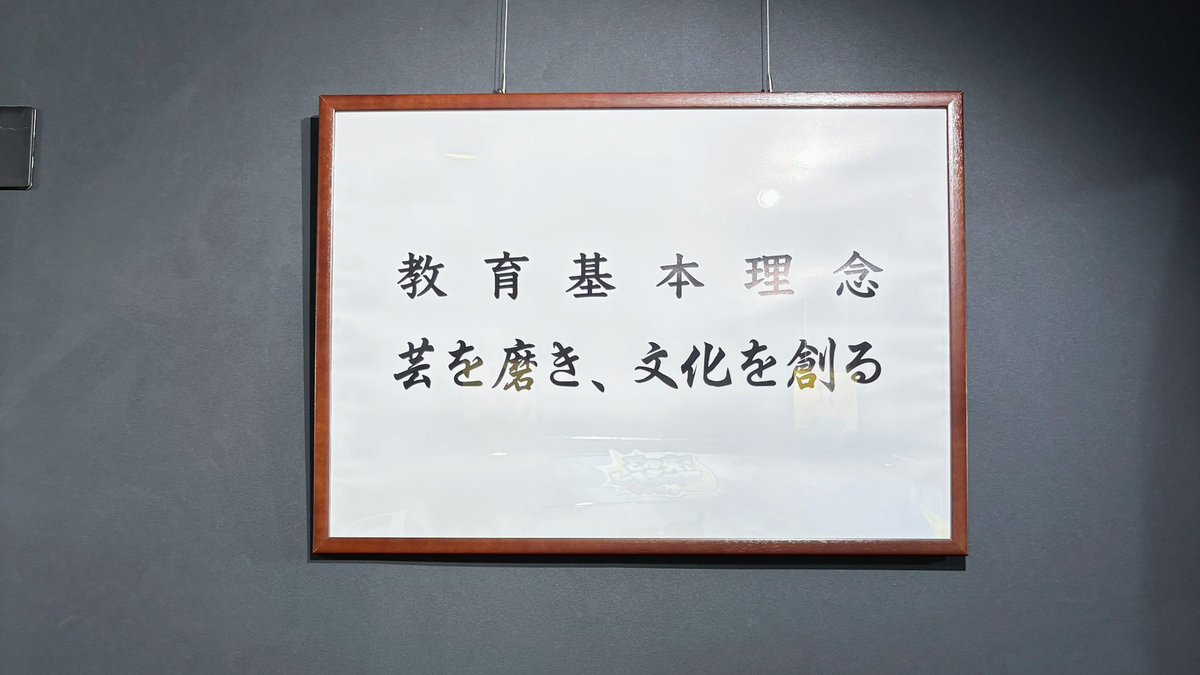 教育基本理念
芸を磨き、文化を創る